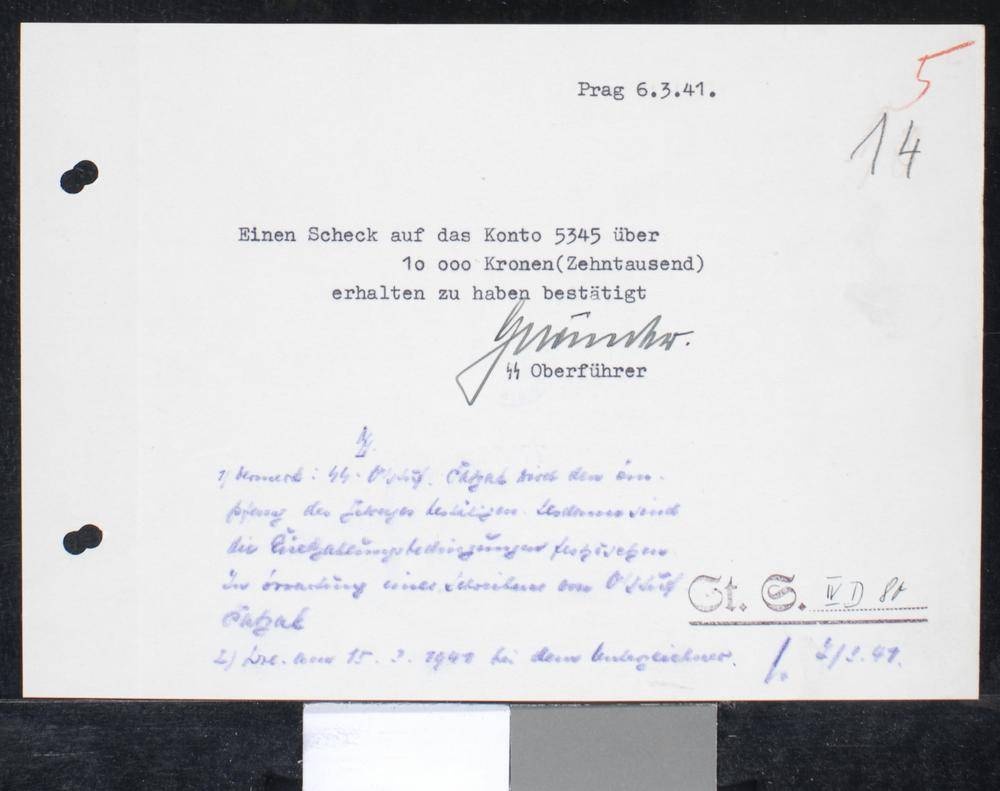 5
Prag 6.3.41.
14
Einen Scheck auf das Konto 5345 über
1o ooo Kronen(Zehntausend)
erhalten zu haben bestätigt
SS Oberführer
1) Vermerk: SS-O'Stuf. wird den Em-
pfang des bestätigen. Sodann sind
die Rückzahlungsbedingungen festzusetzen.
In Erwartung eines Schreibens von O'Stuf
St. S. IV D 80
2) Wv. am 15. 3. 1941 bei dem Unterzeichner. 7/3.41.